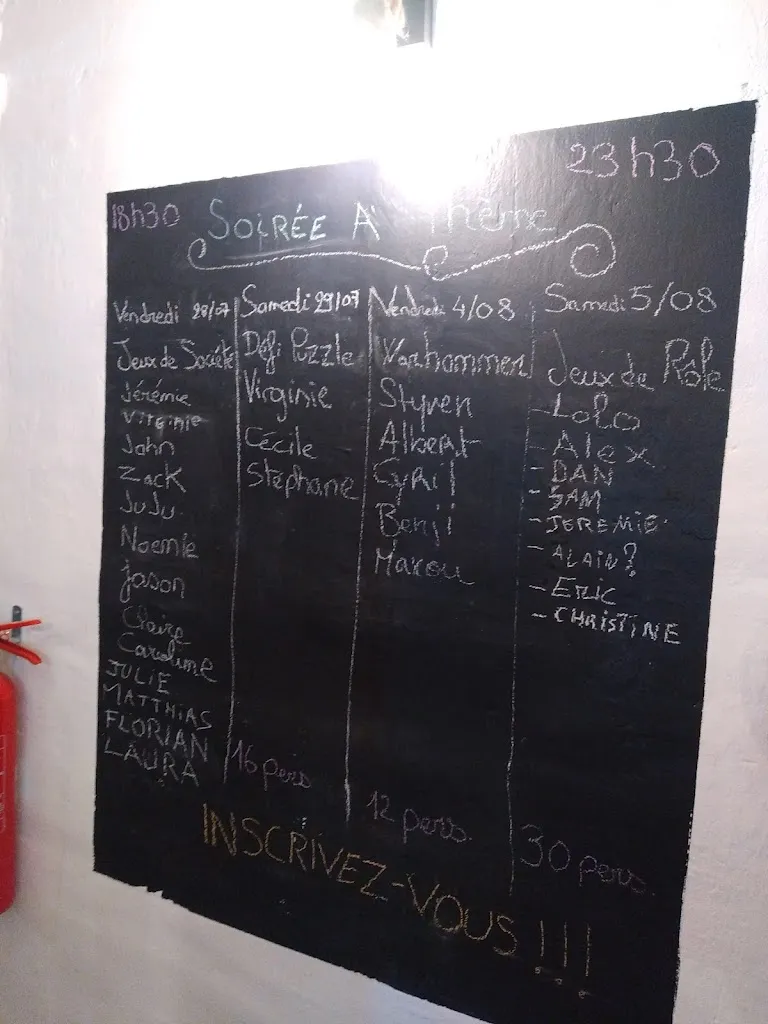 18h30
23h30
SOIRÉE À Thème
Vendredi 28/07
Jeux de Société
Jérémie
Virginie
John
Zack
JuJu
Noemie
Jason
Claire
Caroline
JULIE
MATTHIAS
FLORIAN
LAURA
Samedi 29/07
Défi Puzzle
Virginie
Cécile
Stéphane
16 pers
Vendredi 4/08
Warhammer
Styven
Albert
Cyril
Benji
Maxou
12 pers.
Samedi 5/08
Jeux de Rôle
- Lolo
- Alex
- DAN
- SAM
- JEREMIE
- ALAIN?
- Eric
- CHRISTINE
30 pers.
INSCRIVEZ-VOUS !!!